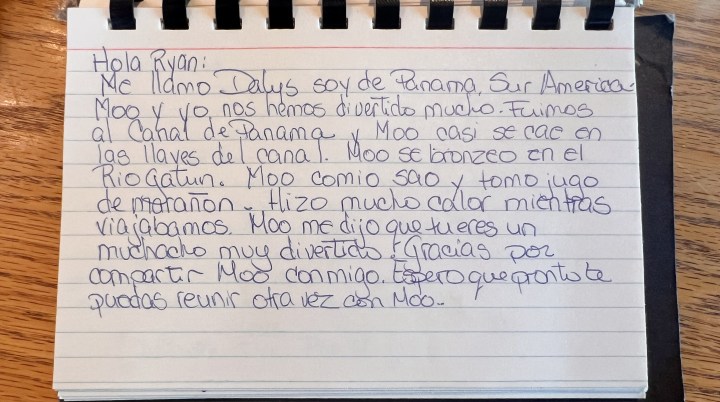 Hola Ryan:
Me llamo Dalys soy de Panama, Sur America
Moo y yo nos hemos divertido mucho. Fuimos
al Canal de Panama y Moo casi se cae en
las llaves del canal. Moo se bronzeo en el
Rio Gatun. Moo comio sao y tomo jugo
de marañon. Hizo mucho calor mientras
viajabamos. Moo me dijo que tu eres un
muchacho muy divertido! Gracias por
compartir Moo conmigo. Espero que pronto te
puedas reunir otra vez con Moo.